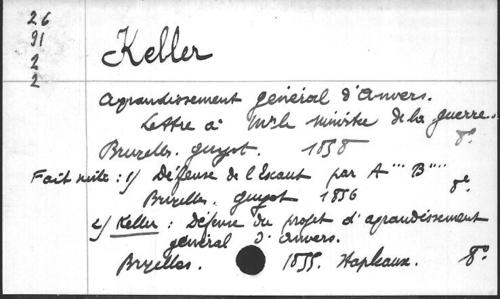 26
91
2
2
Keller
Agrandissement général d'Anvers.
Lettre à Mr le ministre de la guerre.
Bruxelles. Guyot. 1858 8°
Fait suite : 1/ Défense de l'Escaut par A''' B''''
Bruxelles. Guyot 1856 8°
2/ Keller : Défense du projet d'agrandissement
général d'Anvers.
Bruxelles. 1855. Stapleaux. 8°